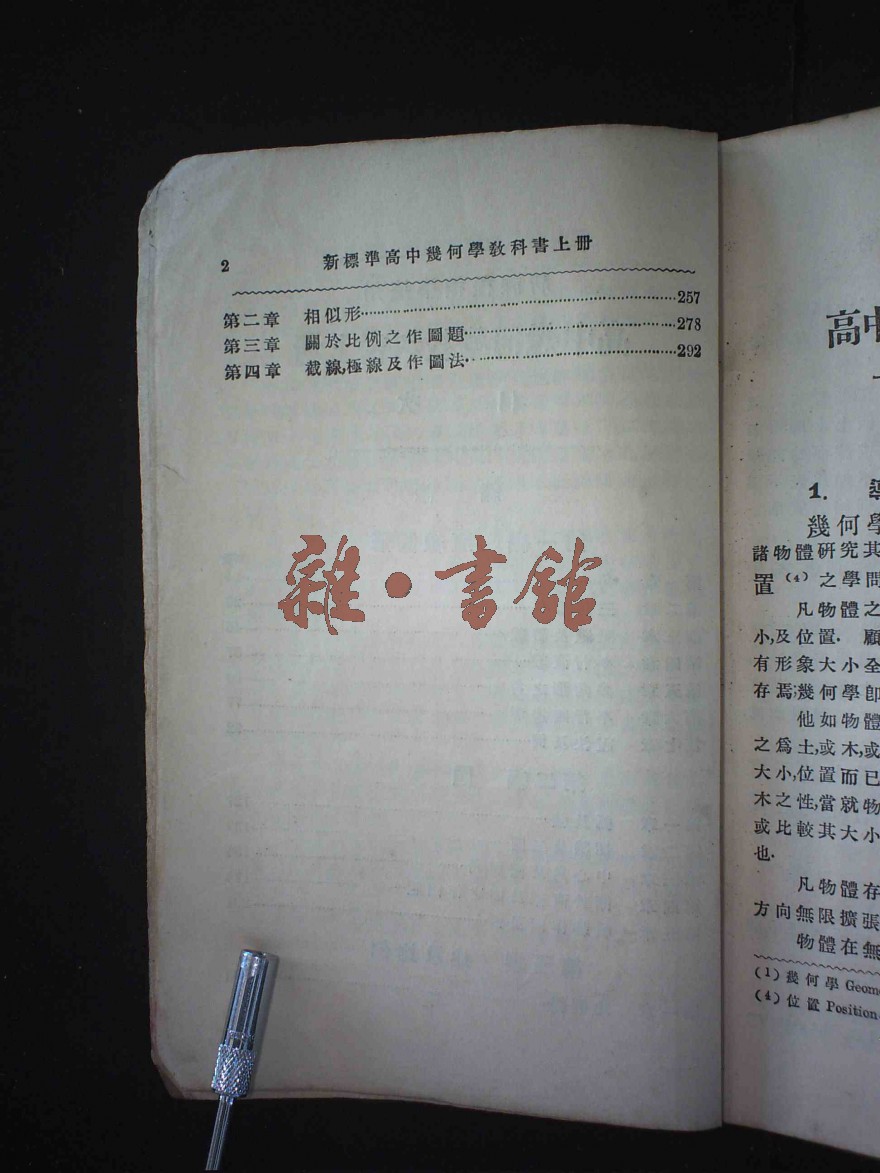 2 新標準高中幾何學教科書上冊
第二章 相似形 257
第三章 關於比例之作圖題 278
第四章 截線,極線及作圖法 292
雜·書館
高中
1.
幾何學
諸物體研究其
置(4)之學問
凡物體之
小,及位置. 顧
有形象大小全
存焉;幾何學卽
他如物體
之爲土,或木,或
大小,位置而已
木之性,當就物
或比較其大小
也.
凡物體存
方向無限擴張
物體在無
(1) 幾何學 Geom
(4) 位置 Position